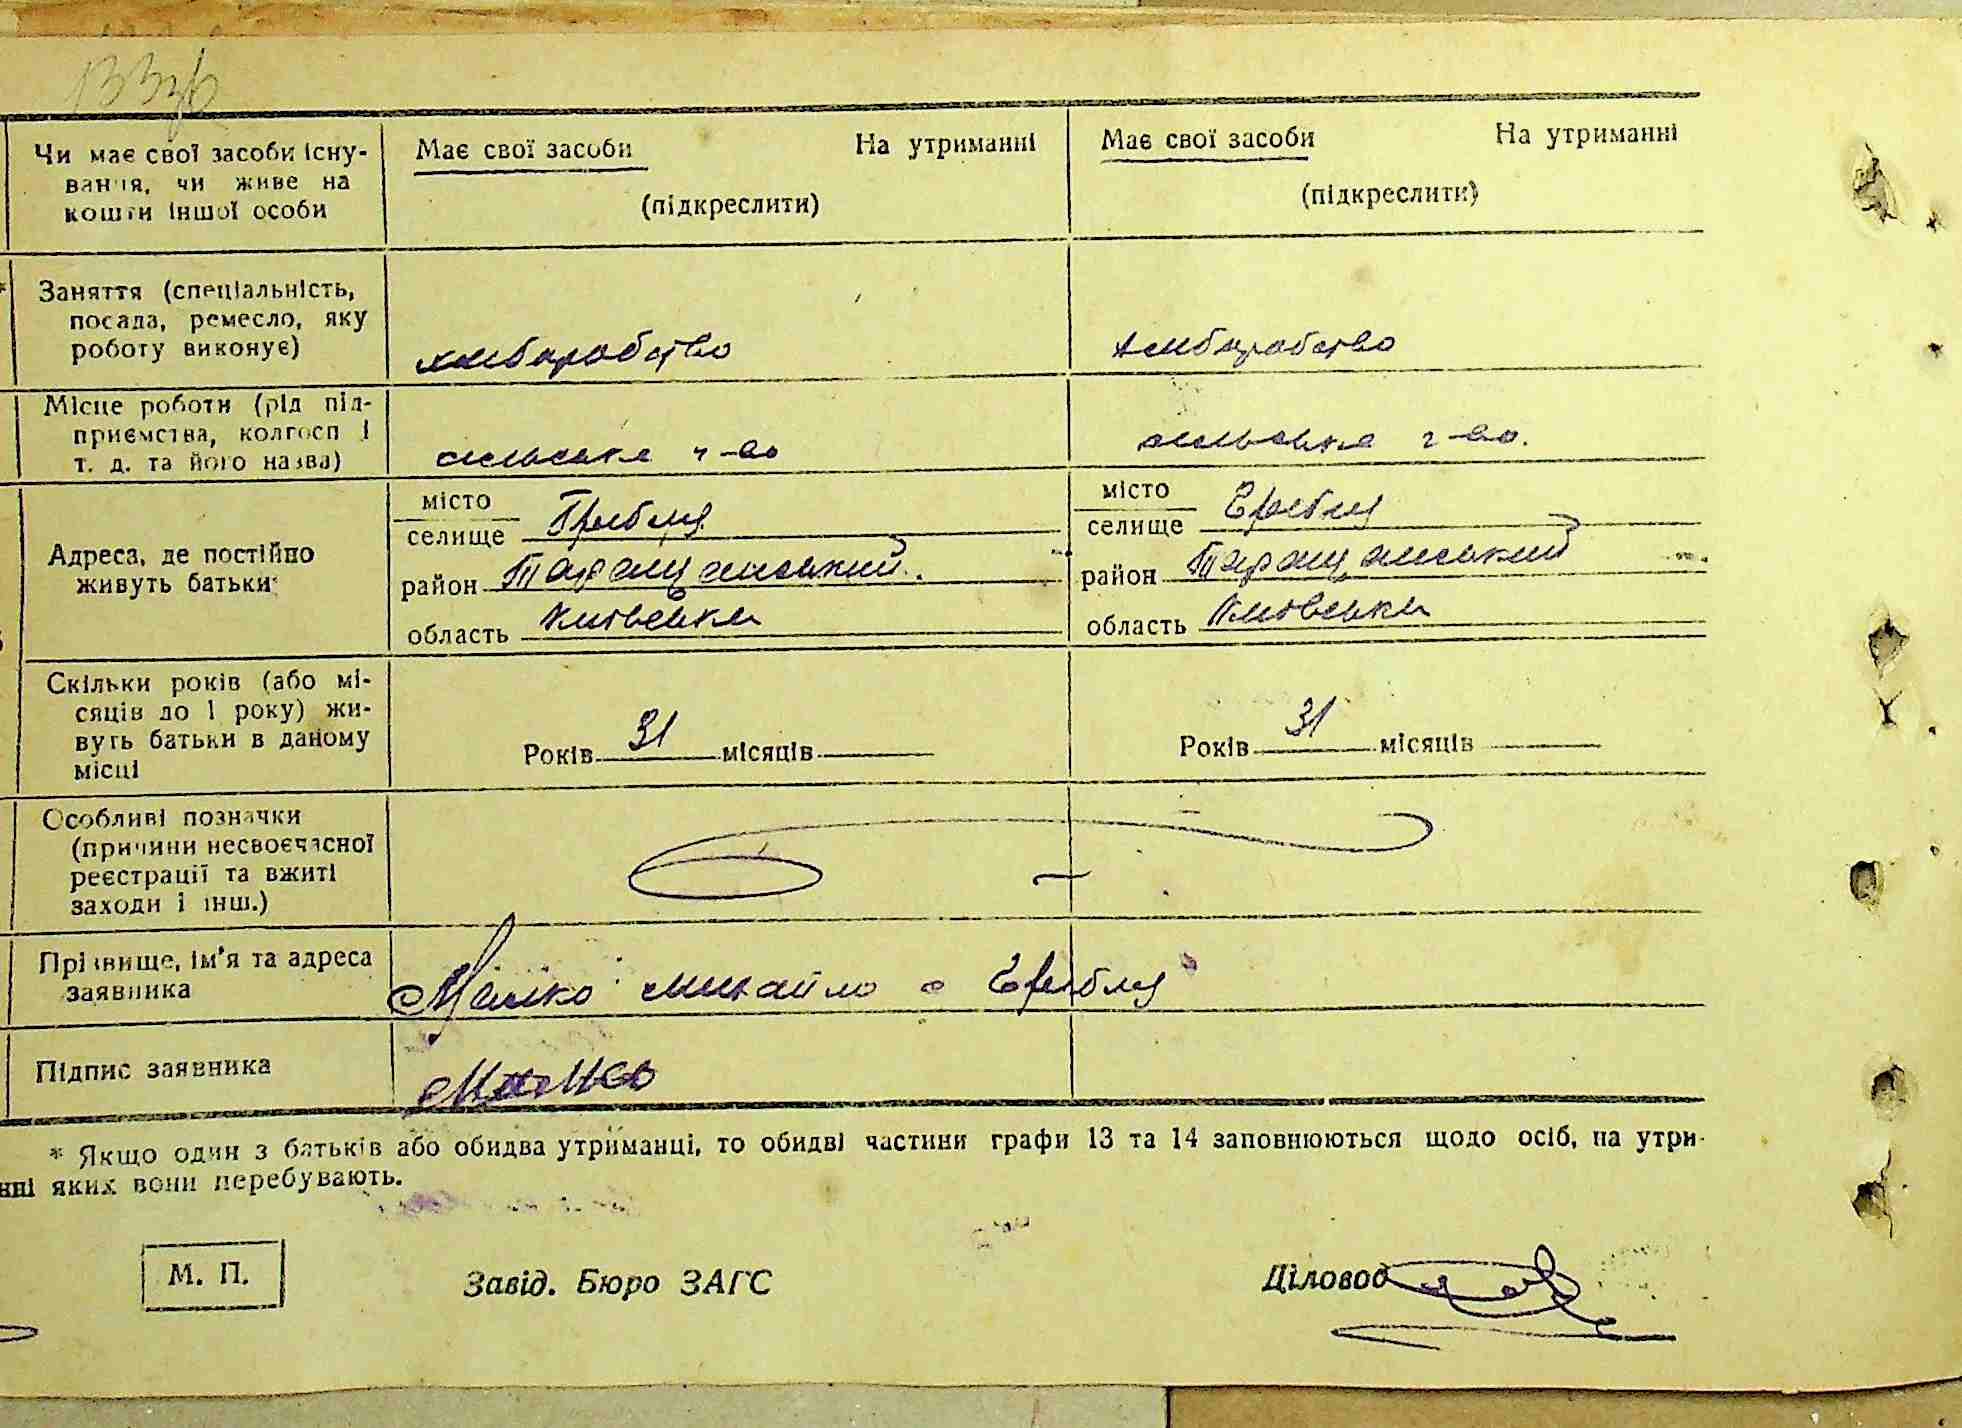 133
Чи має свої засоби існу-
вання, чи живе на
кошти іншої особи
Має свої засоби На утриманні
(підкреслити)
Має свої засоби На утриманні
(підкреслити)
*
Заняття (спеціальність,
посада, ремесло, яку
роботу виконує)
хліборобство
хліборобство
Місце роботи (рід під-
приємства, колгосп і
т. д. та його назва)
сільське г-во
сільське г-во.
Адреса, де постійно
живуть батьки
місто
селище Гребля
район Таращанський
область Київська
місто
селище Гребля
район Таращанський
область Київська
Скільки років (або мі-
сяців до 1 року) жи-
вуть батьки в даному
місці
Років 31 місяців
Років 31 місяців
Особливі позначки
(причини несвоєчасної
реєстрації та вжиті
заходи і інш.)
Прізвище, ім'я та адреса
заявника
Михайло с Гребля
Підпис заявника
* Якщо один з батьків або обидва утриманці, то обидві частини графи 13 та 14 заповнюються щодо осіб, на утри-
нні яких вони перебувають.
М. П.
Завід. Бюро ЗАГС
Діловод